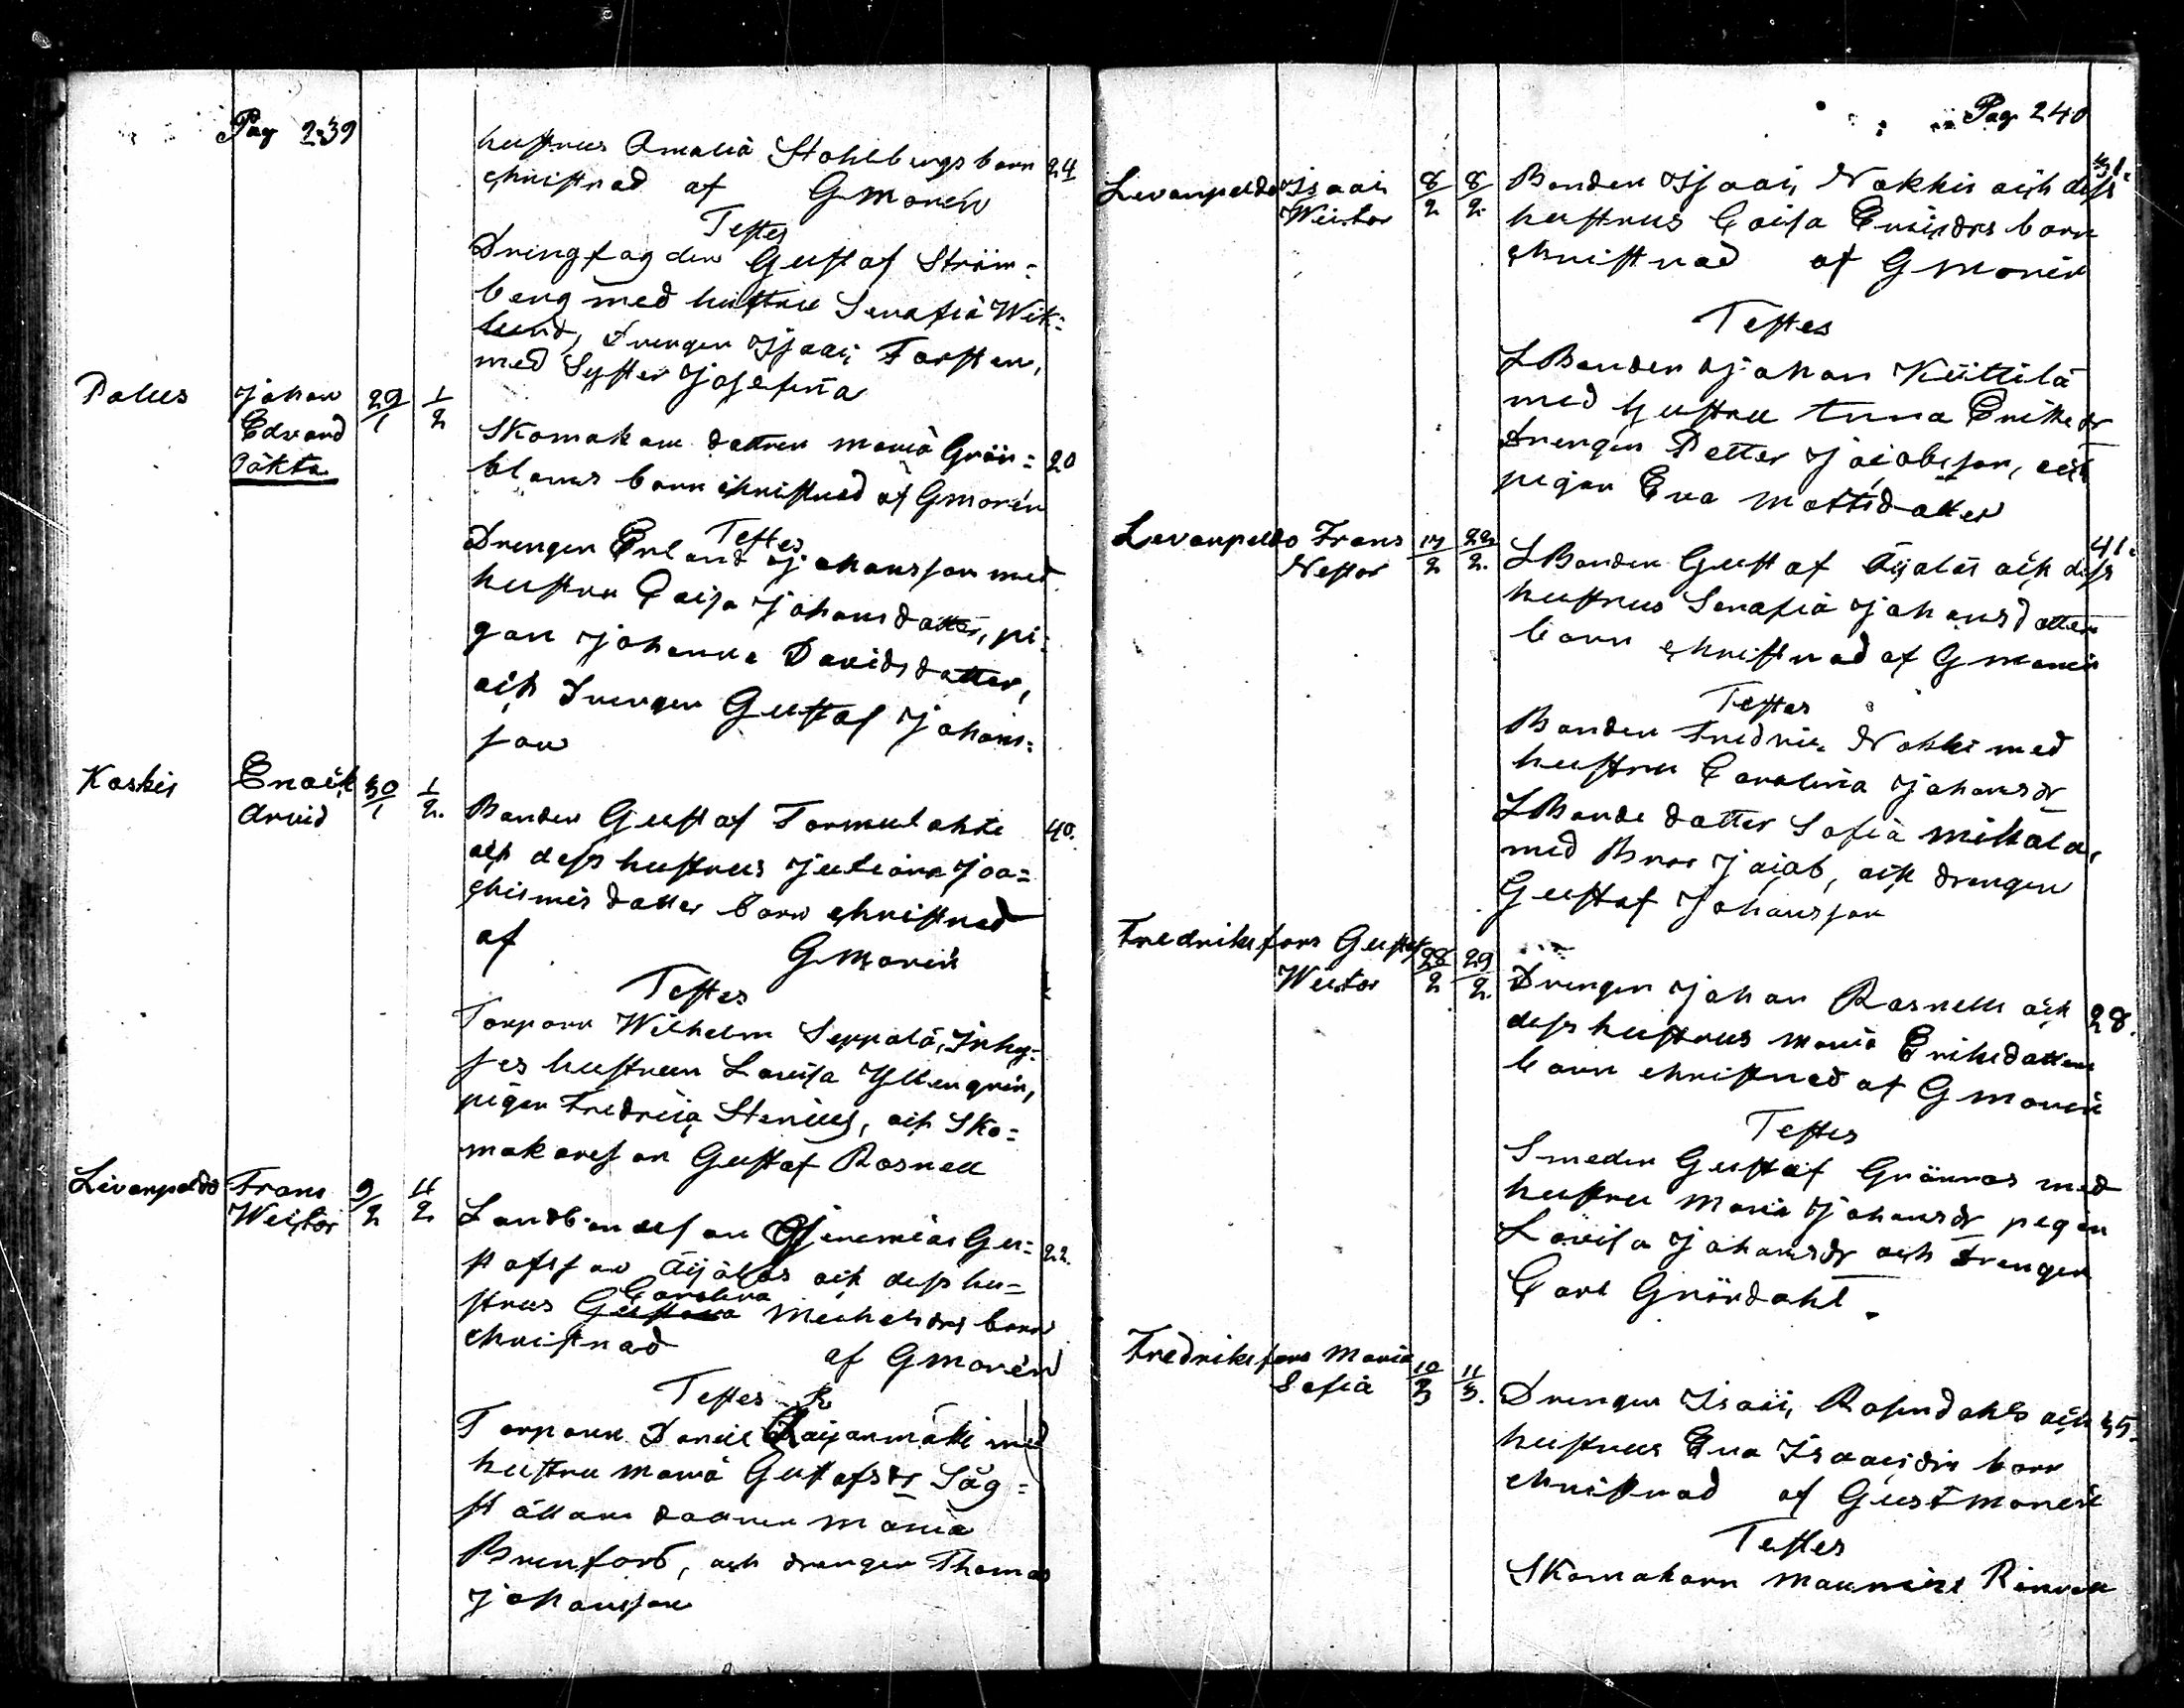 Pag 239
hustrus Amalia Stahlbergs barn 24
christnad af G Morén
Testes
Drengfogden Gustaf Ström=
berg med hustru Serafia Wik=
lund, drengen Isaac Forsten,
med Syster Josefina
Palus Johan Edvard Oäkta 29/1 1/2
Skomakare dottren Maria Grön= 20
bloms barn christnad af G Morén
Testes
Drengen Erland Johansson med
hustru Caisa Johansdotter, pi=
gan Johanna Davidsdotter,
och Drengen Gustaf Johans=
son
Koskis Enoch Arvid 30/1 1/2.
Bonden Gustaf Tormulahti 40.
och dess hustrus Juliana Joa=
chimsdotter barn christnad
af G Morén
Testes
Torparn Wilhelm Seppälä, Inhy=
ses hustrun Lovisa Yllenqrén,
pigan Fredrica Stenius, och Sko=
makareson Gustaf Rosnell
Levanpeldo Frans Wictor 9/2 11/2
Landbondeson Jeremias Gu= 22.
stafsson Äijälas och dess hu=
Carolina
strus Gustava Michelsdrs barn
christnad af G Morén
Testes
Torparn Daniel Raijanmäki med
hustru Maria Gustafsdr Såg=
ställare dottren Maria
Brunfors, och drengen Thomas
Johansson
Pag 240
Levanpeldo Isaac Wictor 8/2 8/2.
Bonden Isaac Nokkis och dess 31.
hustrus Caisa Ericsdrs barn
christnad af G Morén
Testes
LBonden Johan Kiittilä
med hustru Anna Eriksdr
Drengen Petter Jacobsson, och
pigan Eva Mattsdotter
Levanpeldo Frans Nestor 17/2 22/2.
LBonden Gustaf Äijäläs och dess 41.
hustrus Serafia Johansdotters
barn christnad af G Morén
Testes
Bonden Fredric Nokki med
hustru Carolina Johansdr
LBonde dotter Sofia Mikkola,
med Bror Jacob, och drengen
Gustaf Johansson
Fredriksfors Gustaf Wictor 28/2 29/2.
Drengen Johan Rosnells och 28.
dess hustrus Maria Eriksdotters
barn christnad af G Morén
Testes
Smeden Gustaf Grönroos med
hustru Maria Johansdr pigan
Lovisa Johansdr och drengen
Carl Gröndahl.
Fredriksfors Maria Sofia 10/3 11/3.
Drengen Isaac Rosendahls och 35.
hustrus Eva Isaacsdrs barn
christnad af Gust Morén
Testes
Skomakarn Maunitz